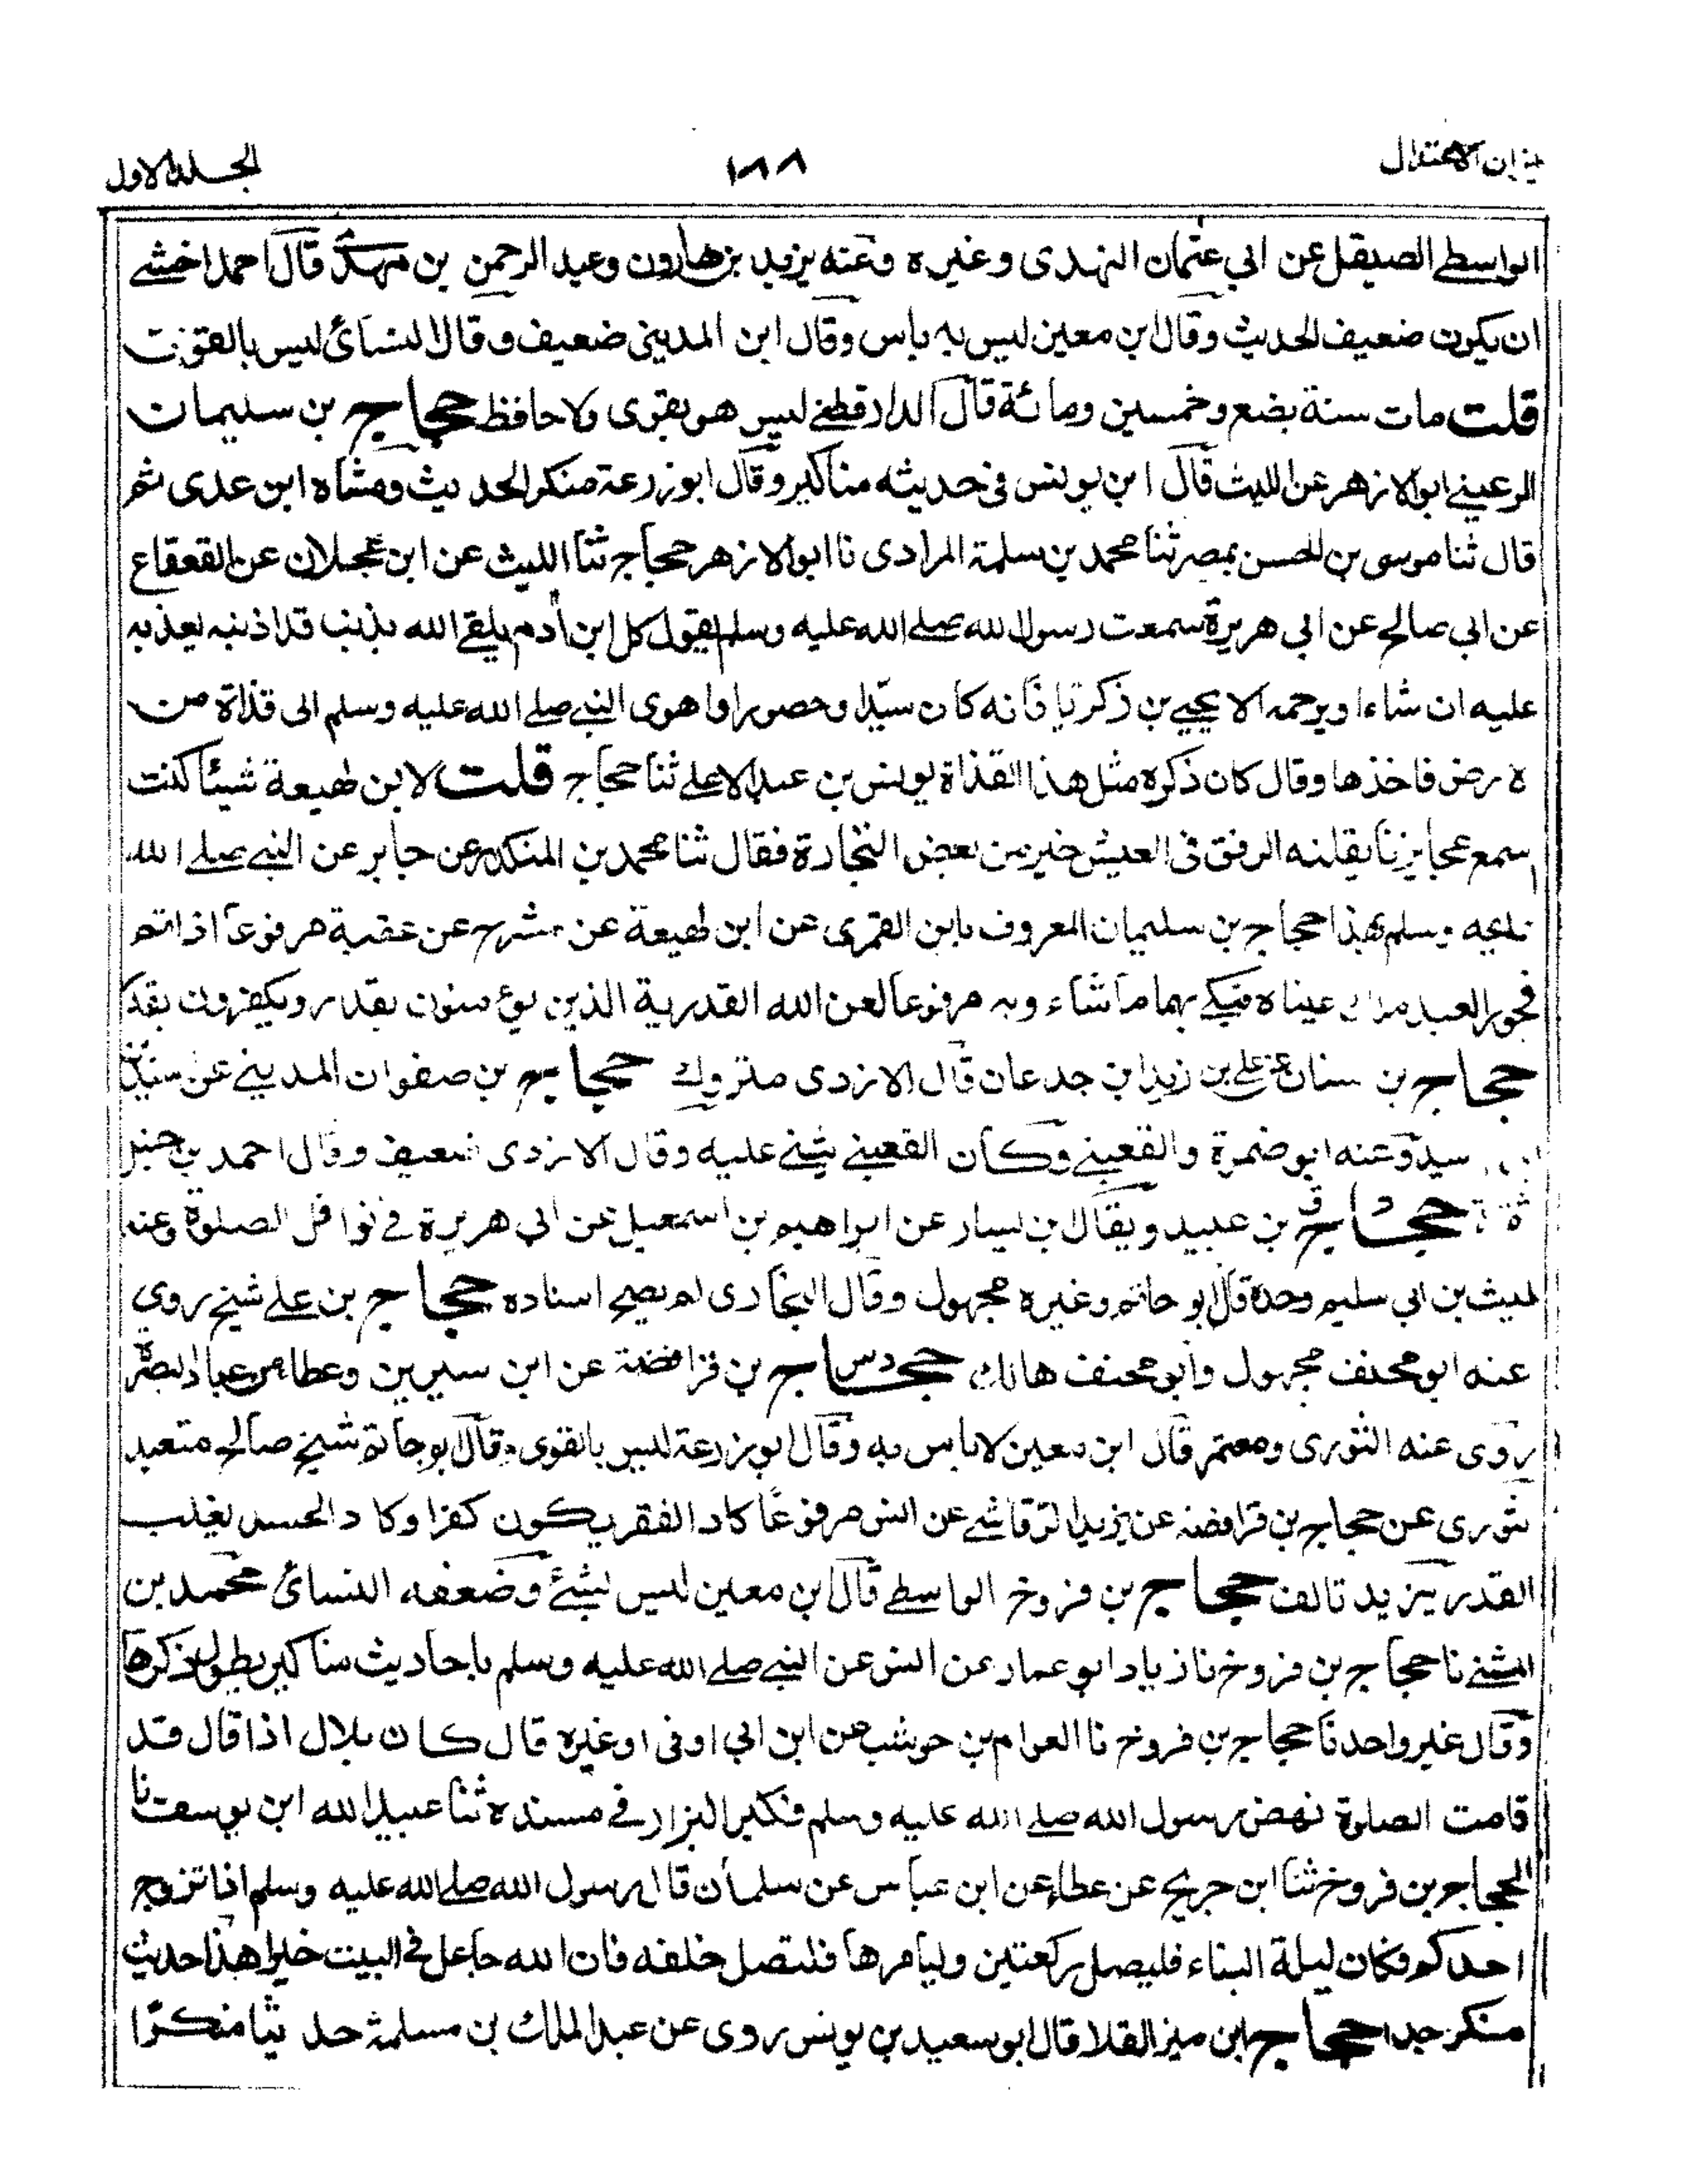 ميزان الاعتدال
١٨٨
الجلد الاول
الواسطے الصيقل عن ابي عثمان النهدى وغيره وعنه يزيد بن هارون وعبد الرحمن بن مهدى قال احمد اخشے
ان يكون ضعيف الحديث وقال ابن معين ليس به باس وقال ابن المدينى ضعيف وقال النسائ ليس بالقوى
قلت مات سنة بضع وخمسين ومائة قال الدارقطنے ليس هو بقوى ولا حافظ حجاج بن سليمان
الرعينے ابو الازهر عن الليث قال ابن يونس فى حديثه مناكير وقال ابو زرعة منكر الحديث ومشاه ابن عدى ثم
قال ثنا موسى بن الحسن بمصر ثنا محمد بن سلمة المرادى نا ابو الازهر حجاج ثنا الليث عن ابن عجلان عن القعقاع
عن ابى صالح عن ابى هريرة سمعت رسول الله صلے الله عليه وسلم يقول كل ابن آدم يلقے الله بذنب قد اذنبه يعذبه
عليه ان شاء او يرحمه الا يحيے بن زكريا فانه كان سيدا وحصورا واهوى النبے صلے الله عليه وسلم الى قذاة من
ه رض فاخذها وقال كان ذكره مثل هذا القذاة يونس بن عبد الاعلے ثنا حجاج قلت لابن لهيعة شيئا كنت
اسمع عجايزنا يقلنه الرفق فى العيش خير من بعض التجارة فقال ثنا محمد بن المنكدر عن جابر عن النبے صلے الله
عليه وسلم بهذا حجاج بن سليمان المعروف بابن القمرى عن ابن لهيعة عن مشرح عن عقبة مرفوعا اذا تم
فجور العبد ملك عيناه فيبكے بهما ما شاء وبه مرفوعا لعن الله القدرية الذين يؤمنون بقدر ويكفرون بقدر
حجاج بن سنان عن علے بن زيد ابن جدعان قال الازدى متروك حجاج بن صفوان المدينے عن
سيد وعنه ابو ضمرة والقعنبے وكان القعنبے يثنے عليه وقال الازدى ضعيف وقال احمد بن حنبل
ثقة حجاج بن عبيد ويقال بن يسار عن ابراهيم بن اسمعيل عن ابى هريرة فے نوافل الصلوة وعنه
ليث بن ابى سليم وحده قال ابو حاتم وغيره مجهول وقال البخارى لم يصح اسناده حجاج بن علے شيخ روى
عنه ابو مخنف مجهول وابو مخنف هالك حجاج بن فرافصة عن ابن سيرين وعطا من عباد البصرة
روى عنه الثورى ومعتمر قال ابن معين لاباس به وقال ابو زرعة ليس بالقوى وقال ابو حاتم شيخ صالح متعبد
ثورى عن حجاج بن فرافصة عن يزيد الرقاشے عن انس مرفوعا كاد الفقر يكون كفرا وكاد الحسد يغلب
القدر يزيد تالف حجاج بن فروخ الواسطے قال ابن معين ليس بشئ وضعفه النسائ محمد بن
المثنے نا حجاج بن فروخ نا زياد ابو عمار عن انس عن النبے صلے الله عليه وسلم باحاديث مناكير يطول ذكرها
وقال غير واحد نا حجاج بن فروخ نا العوام بن حوشب عن ابن ابى اوفى اوغيره قال كان بلال اذا قال قد
قامت الصلوة نهض رسول الله صلے الله عليه وسلم فكبر البزار فے مسنده ثنا عبيد الله ابن يوسف نا
الحجاج بن فروخ ثنا ابن جريج عن عطاء عن ابن عباس عن سلمان قال رسول الله صلے الله عليه وسلم اذا تزوج
احدكم فكان ليلة البناء فليصل ركعتين وليامرها فلتصل خلفه فان الله جاعل فے البيت خيرا هذا حديث
منكر جدا حجاج ابن ميز القلا قال ابو سعيد بن يونس روى عن عبد الملك بن مسلمة حديثا منكرا